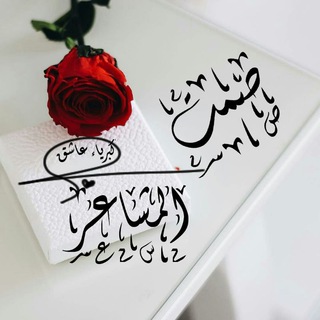 صمت
كبرياء عاشق
المشاعر